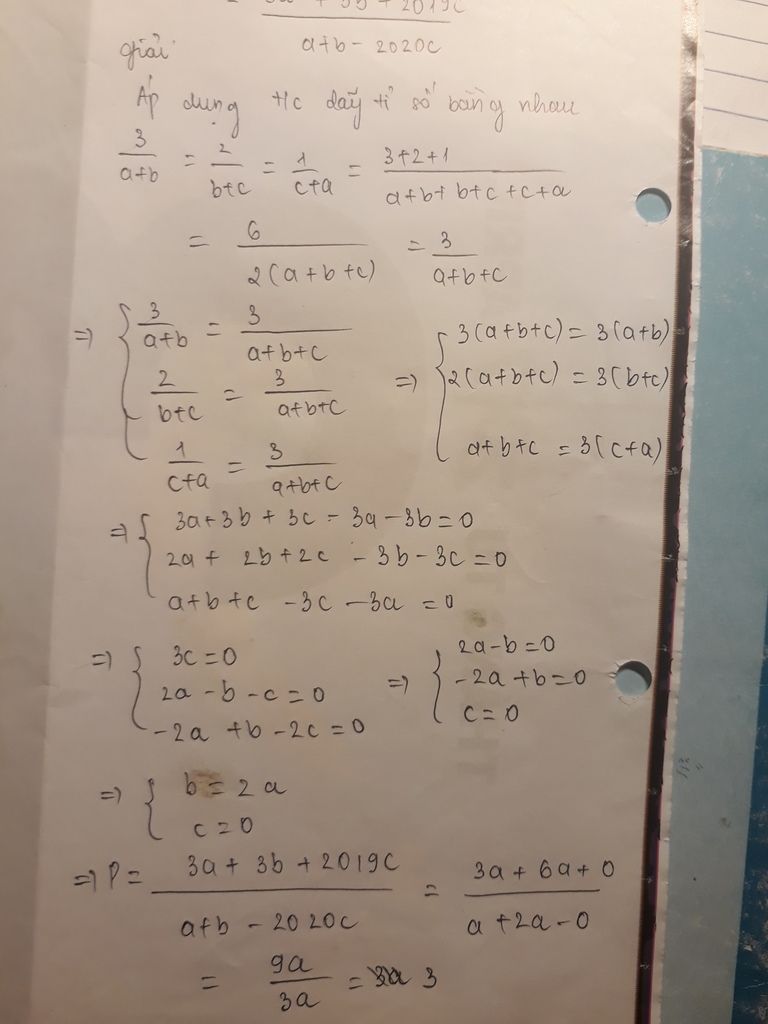 = 3a + 3b + 2019c / a+b - 2020c
giải:
Áp dụng t/c dãy tỉ số bằng nhau
3/(a+b) = 2/(b+c) = 1/(c+a) = (3+2+1)/(a+b+b+c+c+a)
= 6/(2(a+b+c)) = 3/(a+b+c)
=> { 3/(a+b) = 3/(a+b+c)
2/(b+c) = 3/(a+b+c)
1/(c+a) = 3/(a+b+c)
=> { 3(a+b+c) = 3(a+b)
2(a+b+c) = 3(b+c)
a+b+c = 3(c+a)
=> { 3a+3b+3c-3a-3b=0
2a+2b+2c-3b-3c=0
a+b+c-3c-3a=0
=> { 3c=0
2a-b-c=0
-2a+b-2c=0
=> { 2a-b=0
-2a+b=0
c=0
=> { b=2a
c=0
=> P = (3a+3b+2019c)/(a+b-2020c) = (3a+6a+0)/(a+2a-0)
= 9a/3a = 3